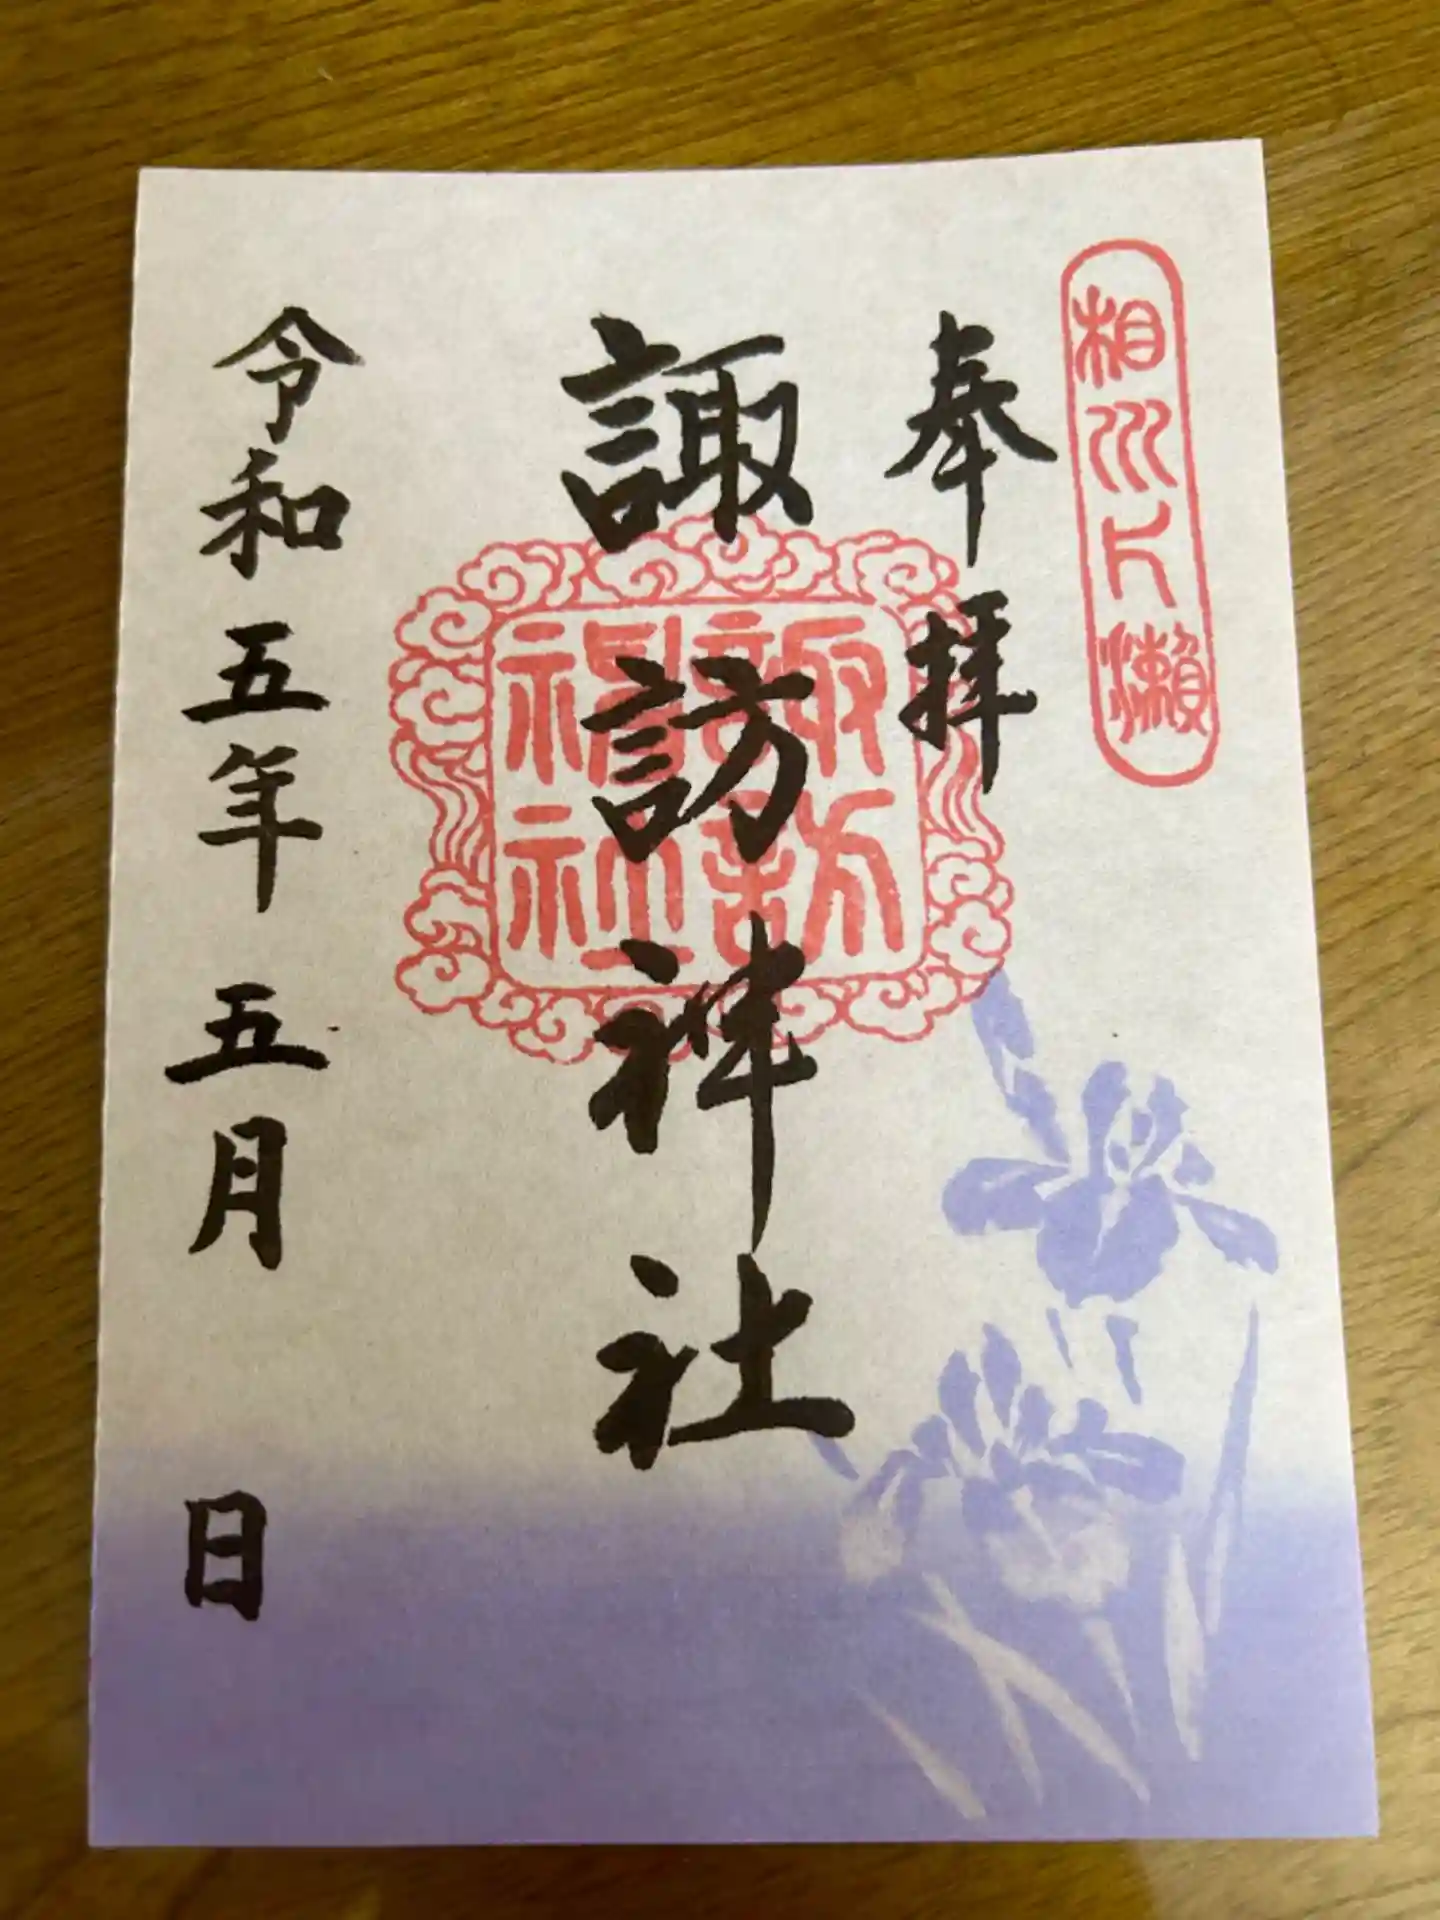 相州片瀬
奉拝
諏訪神社
諏訪
神社
令和五年五月 日